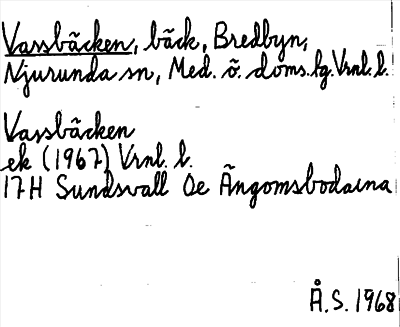 Vassbäcken, bäck, Bredbyn,
Njurunda sn, Med. ö. doms.hg. Vrnl. l.
Vassbäcken
ek (1967) Vrnl. l.
17H Sundsvall Oe Ängomsbodarna
Å.S. 1968